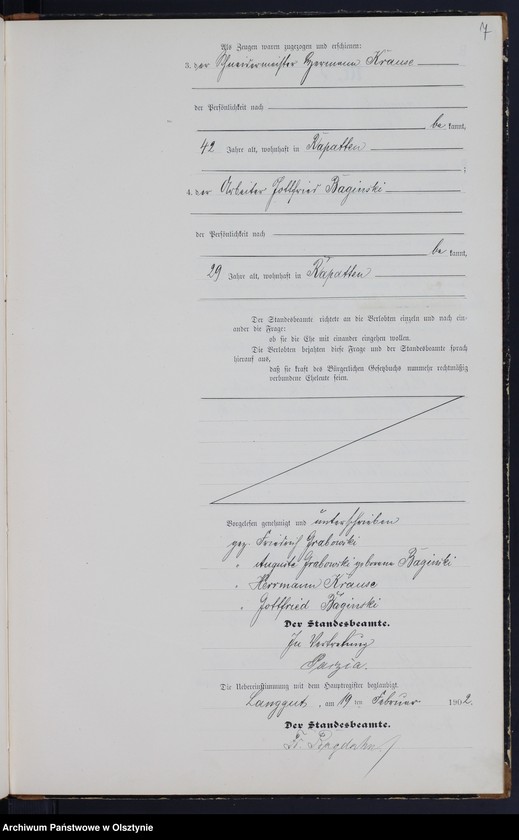 7
Als Zeugen waren zugezogen und erschienen:
3. der Schneidermeister Hermann Krause
der Persönlichkeit nach
bekannt,
42 Jahre alt, wohnhaft in Rapatten
;
4. der Arbeiter Gottfried Baginski
der Persönlichkeit nach
bekannt,
29 Jahre alt, wohnhaft in Rapatten
Der Standesbeamte richtete an die Verlobten einzeln und nach ein-
ander die Frage:
ob sie die Ehe mit einander eingehen wollen.
Die Verlobten bejahten diese Frage und der Standesbeamte sprach
hierauf aus,
daß sie kraft des Bürgerlichen Gesetzbuchs nunmehr rechtmäßig
verbundene Eheleute seien.
Vorgelesen genehmigt und unterschrieben
gez. Friedrich Grabowski
" Auguste Grabowski geborene Baginski
" Herrmann Krause
" Gottfried Baginski
Der Standesbeamte.
In Vertretung
Parzia.
Die Uebereinstimmung mit dem Hauptregister beglaubigt.
Langgut, am 19 ten Februar 1902.
Der Standesbeamte.
Archiwum Państwowe w Olsztynie